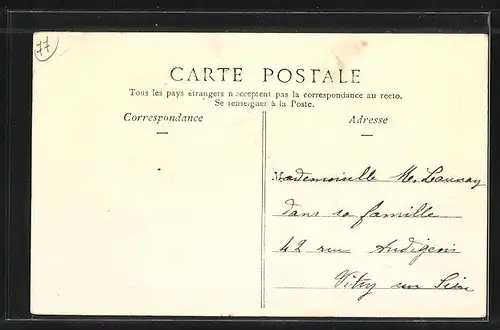 77
CARTE POSTALE
Tous les pays étrangers n'acceptent pas la correspondance au recto.
Se renseigner à la Poste.
Correspondance
Adresse
Mademoiselle M. Launay
dans sa famille
42 rue Audigeois
Vitry sur Seine